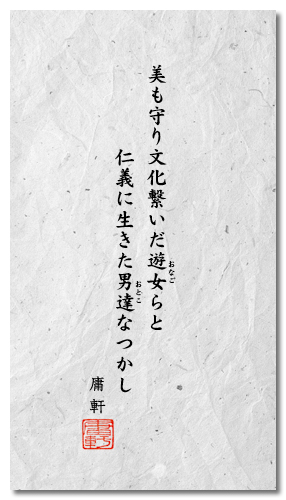 美も守り文化繋いだ遊女らと
おなご
仁義に生きた男達なつかし
おとこ
庸軒
庸軒